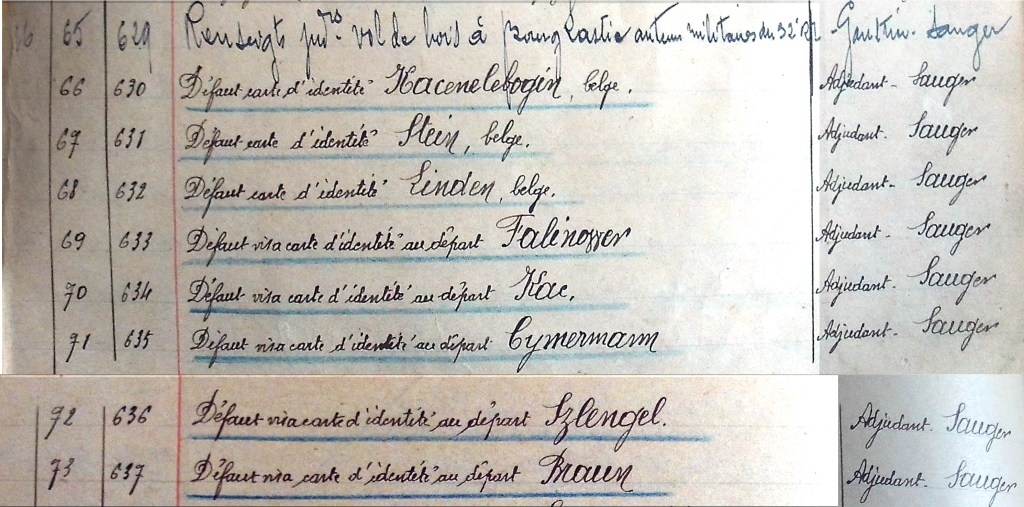 65 629 Renseigts judrs vol de bois à auteurs militaires du 32e Sauger
66 630 Défaut carte d'identité Kacenelefogin, belge. Adjudant - Sauger
67 631 Défaut carte d'identité Stein, belge. Adjudant - Sauger
68 632 Défaut carte d'identité Linden, belge. Adjudant - Sauger
69 633 Défaut visa carte d'identité au départ Falinower Adjudant - Sauger
70 634 Défaut visa carte d'identité au départ Kac. Adjudant - Sauger
71 635 Défaut visa carte d'identité au départ Cymermann Adjudant - Sauger
72 636 Défaut visa carte d'identité au départ Szlengel. Adjudant - Sauger
73 637 Défaut visa carte d'identité au départ Braun Adjudant - Sauger